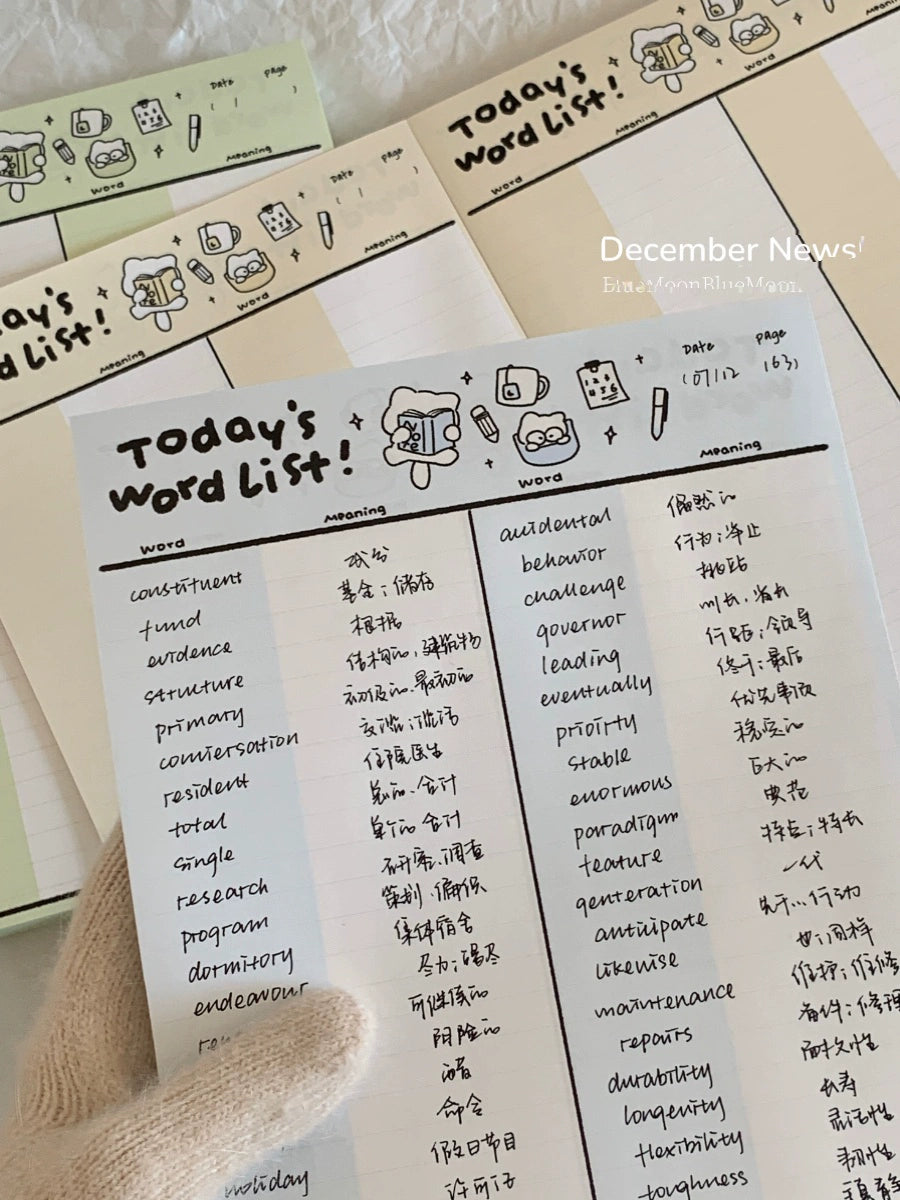 Date page
Word Meaning
Today's
Word List!
Word Meaning
Date page
Word Meaning
ay's
d List!
Meaning
December News!
BlueMoonBlueMoon.
Today's
Word List!
Date page
(07/12 (63)
Word Meaning Word Meaning
constituent 成分
fund 基金;储存
evidence 根据
structure 结构的,建筑物
primary 初级的.最初的
comversation 交谈;谈话
resident 住院医生
total 总的.合计
single 单个的
research 研究.调查
program 策划.
dormitory 集体宿舍
endeavour 尽力;竭尽
可继续的
阴险的
命令
假日节目
holiday 许可证
auidental 偶然的
behavior 行为;举止
challenge 挑战
governor 州长.省长
leading 领导
eventually 终于;最后
prioirty 优先事项
stable 稳定的
enormous 巨大的
paradigm 典范
feature 特点;特长
genteration 一代
antiuipate 先于...行动
likewise 也;同样
maintenance 维护;维修
repairs 备件;修理
durability 耐久性
longenity 长寿
flexibility 灵活性
toughness 韧性